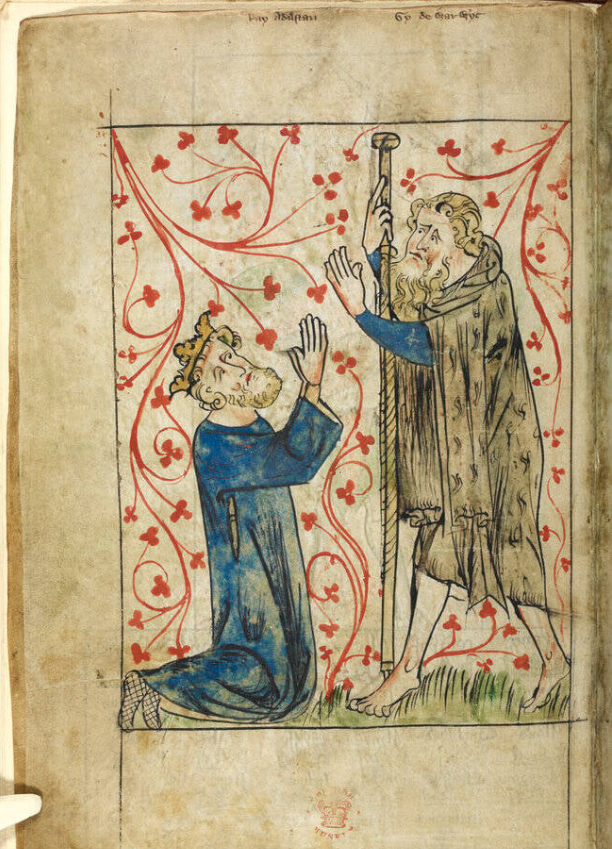 Ray Adelstan Gy de Warwyc